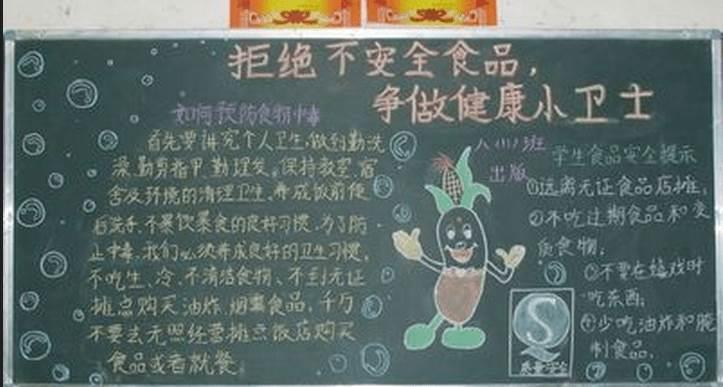 拒绝不安全食品，
争做健康小卫士
如何预防食物中毒
首先要讲究个人卫生，做到勤洗
澡，勤剪指甲，勤理发，保持教室宿
舍及环境的清理卫生，养成饭前便
后洗手，不暴饮暴食的良好习惯，为了防
止中毒，我们必须养成良好的卫生习惯，
不吃生、冷、不清洁食物、不到无证
摊点购买油炸、烟熏食品，千万
不要去无照经营摊点饭店购买
食品或者就餐。
八(八)班
出版
学生食品安全提示
①远离无证食品店摊；
②不吃过期食品和变
质食物；
③不要在嬉戏时
吃东西；
④少吃油炸和腌
制食品。
质量安全